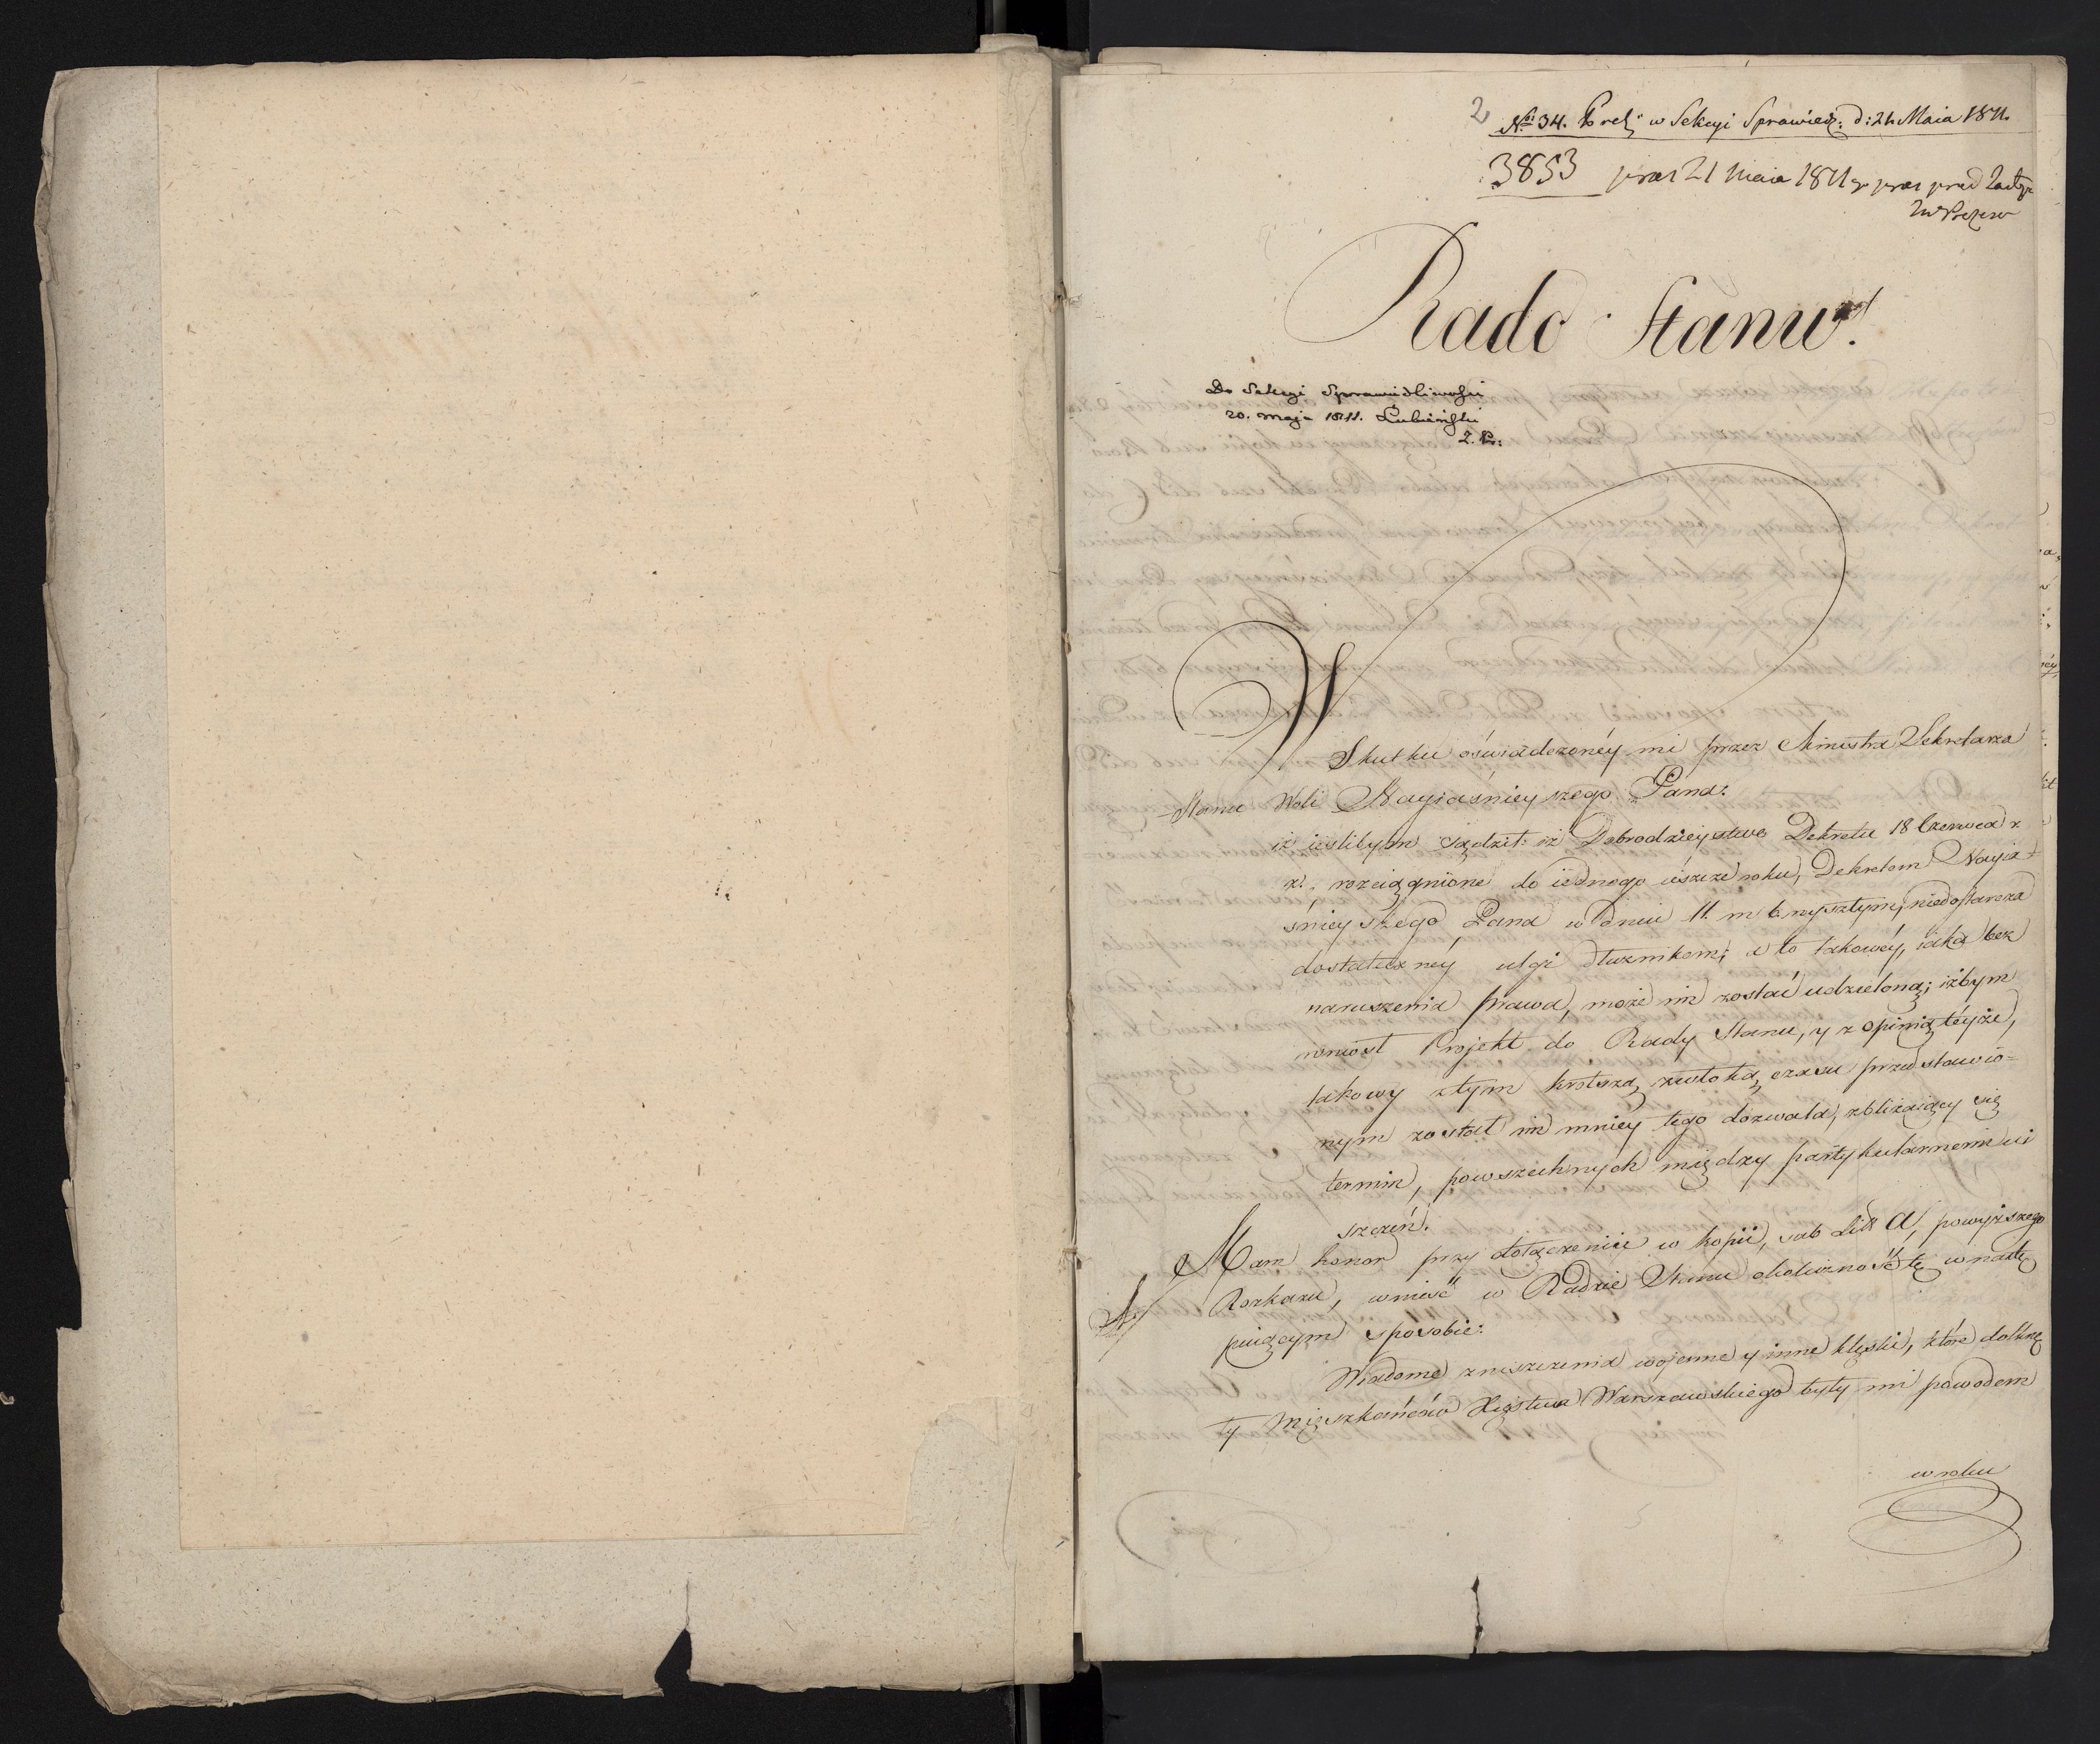 2
No 34. w Sekcyi Sprawied: d: 21 Maia 1811.
3853 praes 21 Maia 1811
Rado Stanu!
Do Sekcyi Sprawiedliwości
20. maja 1811. Łubieński
W Skutku oświadczonéy mi przez Ministra Sekretarza
Stanu Woli Nayiaśnieyszego Pana:
iż ieslibym sądził: iż Dobrodzieystwo Dekretu 18 Czerwca r
z:, rozciągnione do iednego ieszcze roku, Dekretem Nayia=
śnieyszego Pana w dniu 11. m b. niedostarcza
dostateczney ulgi dłużnikom; a to takowéy, iaka bez
naruszenia prawa, może im zostać udzieloną; iżbym
wniosł Projekt do Rady Stanu, y z opinią téyże,
takowy z tym krotszą zwłoką czasu przedstawio=
nym został im mniéy tego dozwala, zbliżaiący się
termin, powszechnych między partykularnemi ui
szczeń.
Mam honor przy dołączeniu w kopii, sub Litt A, powyższego
Rozkazu, wnieść w Radzie Stanu okoliczność tę w nastę
puiącym sposobie:
Wiadome zniszczenia wojenne y inne klęski, które dotknę
ły Mieszkańców Xięstwa Warszawskiego były mi powodem
w roku